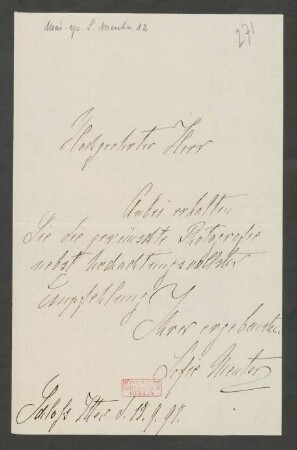 Mus. ep. S. Menter 12
271
Hochgeehrter Herr
Anbei erhalten
Sie die gewünschte Photografie
nebst hochachtungsvollster
Empfehlung
Ihrer ergebensten
Sofie Menter
Schloß Itter d. 13. 9. 97.